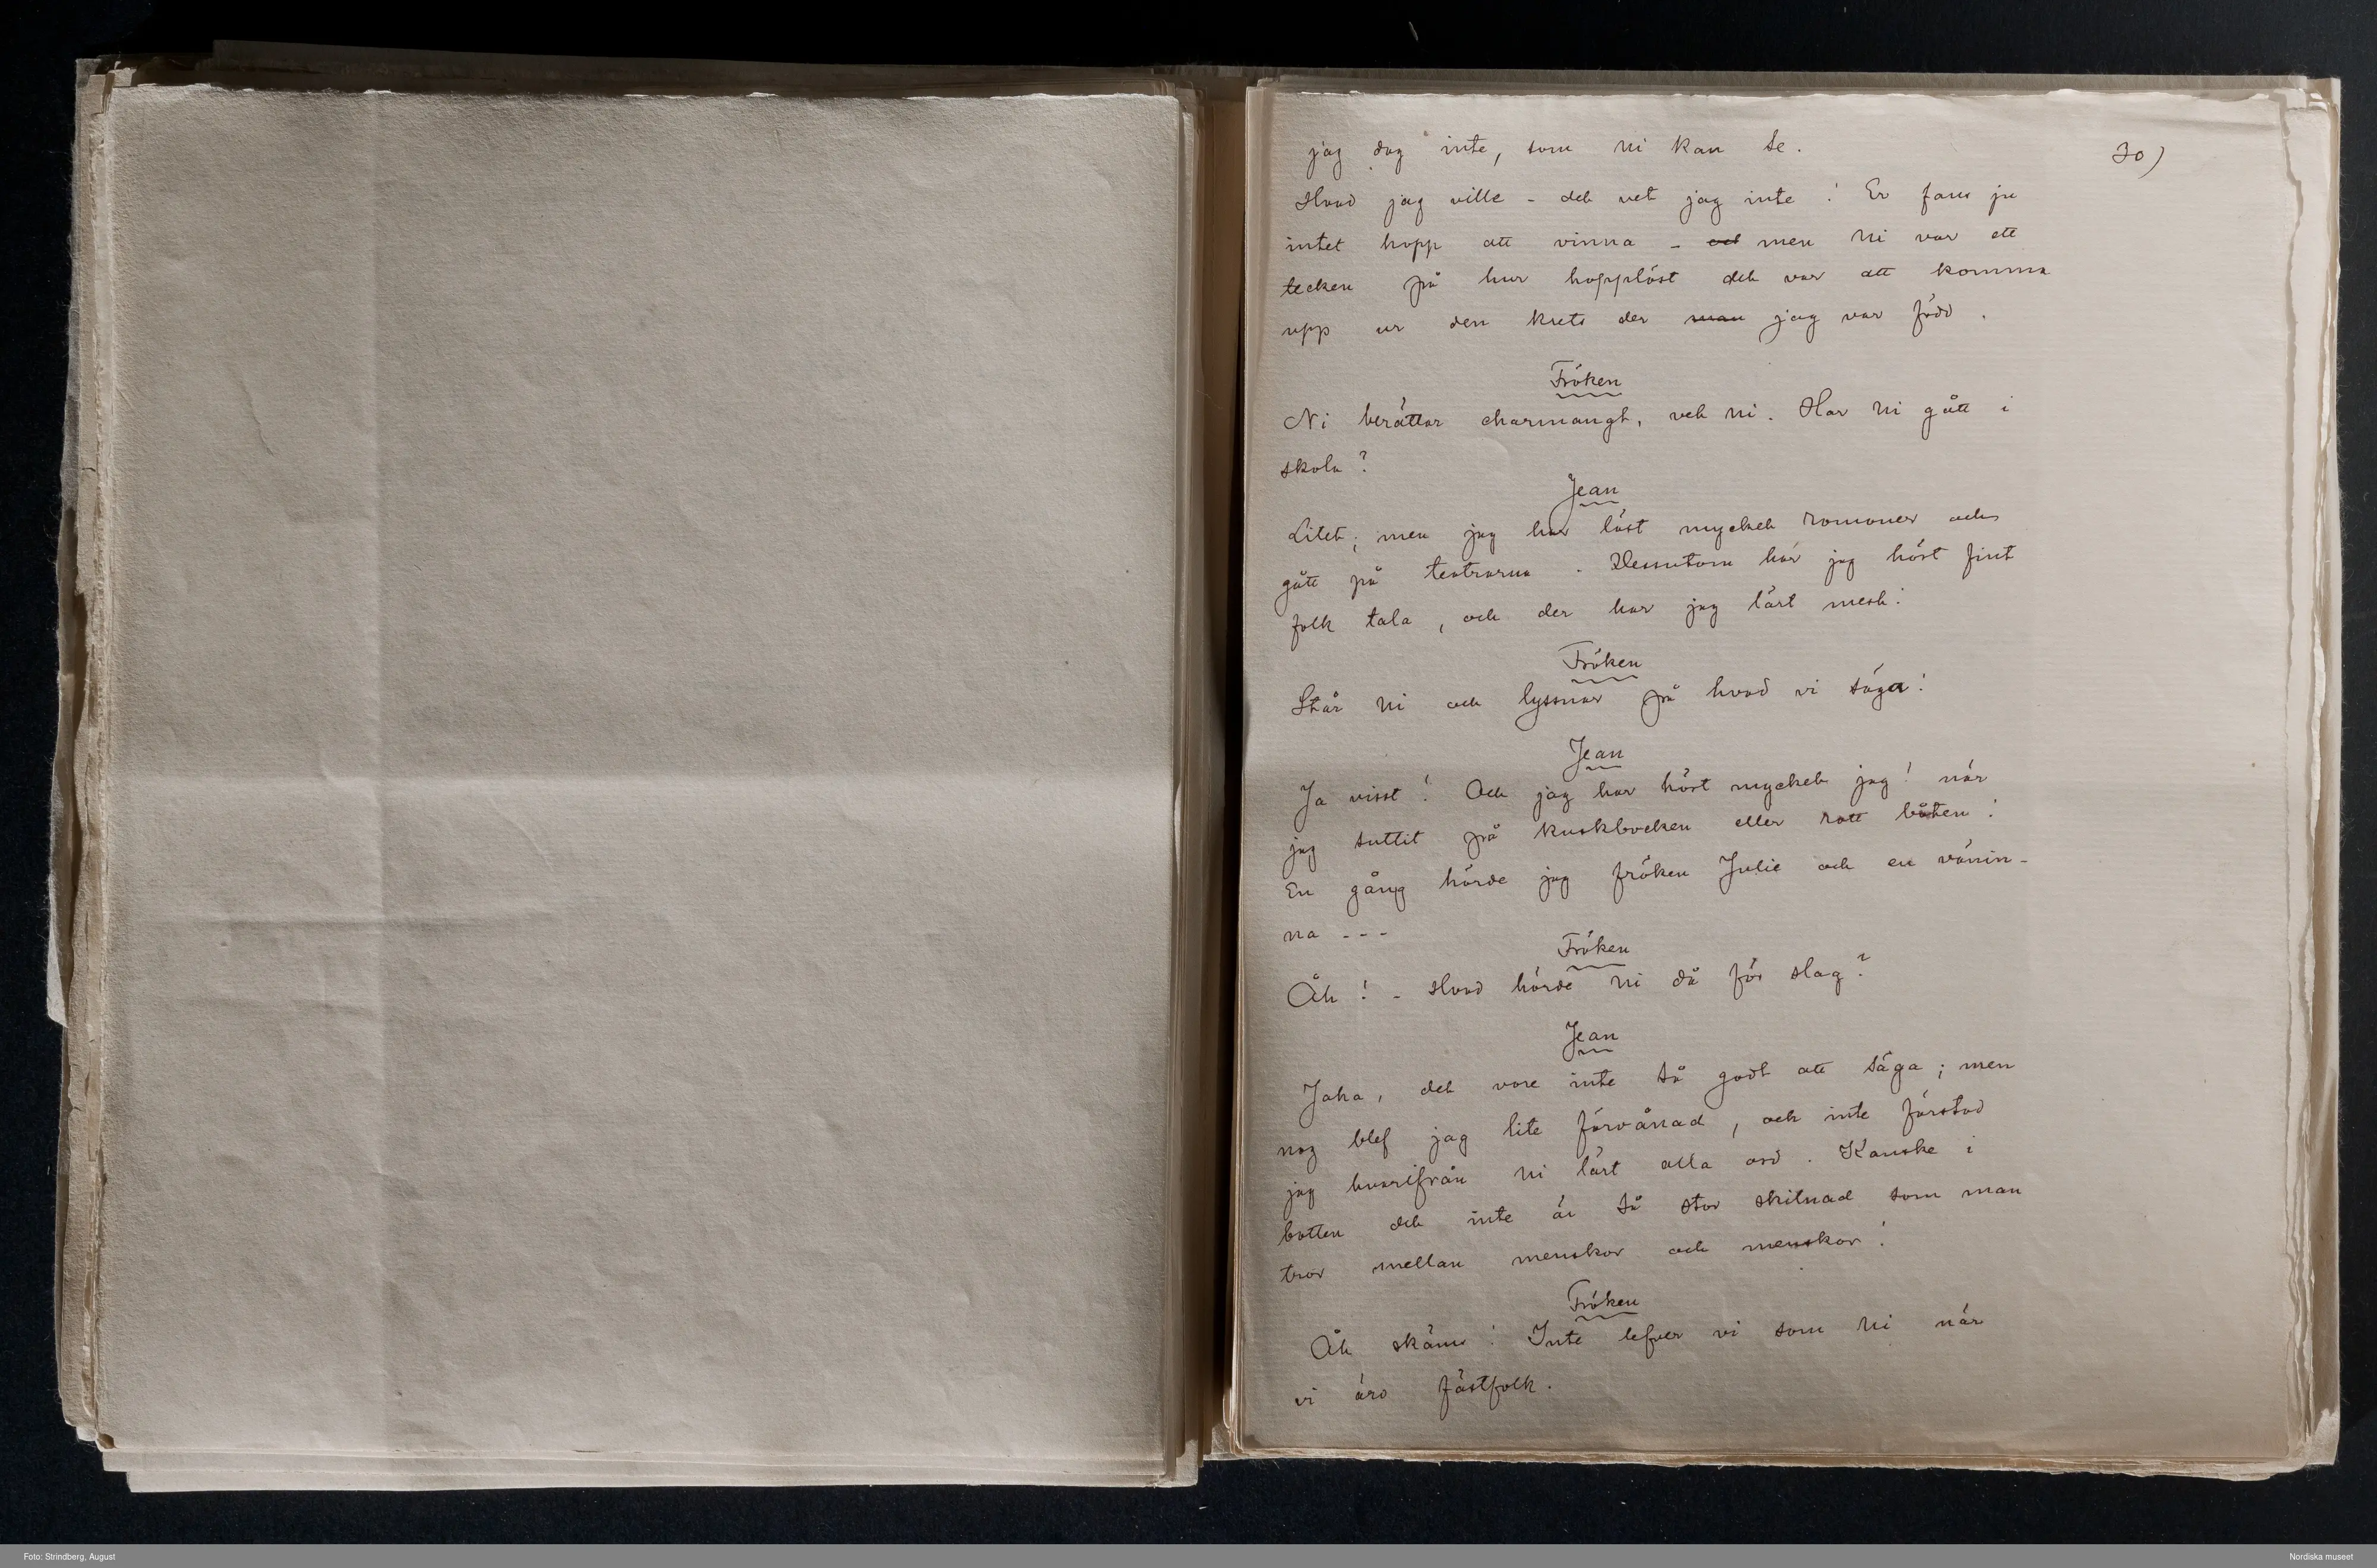 30)
jag dog inte, som ni kan se.
Hvad jag ville – det vet jag inte! Er fans ju
intet hopp att vinna – och men ni var ett
tecken på hur hopplöst det var att komma
upp ur den krets der man jag var född.
Fröken
Ni berättar charmangt, vet ni. Har ni gått i
skola?
Jean
Litet; men jag har läst mycket romaner och
gått på teatrarna. Dessutom har jag hört fint
folk tala, och der har jag lärt mest!
Fröken
Står ni och lyssnar på hvad vi säga!
Jean
Ja visst! Och jag har hört mycket jag! när
jag suttit på kuskbocken eller rott båten!
En gång hörde jag fröken Julie och en vänin-
na - - -
Fröken
Åh! – Hvad hörde ni då för slag?
Jean
Jaha, det vore inte så godt att säga; men
nog blef jag lite förvånad, och inte förstod
jag hvarifrån ni lärt alla ord. Kanske i
botten det inte är så stor skilnad som man
tror mellan menskor och menskor!
Fröken
Åh skäms! Inte lefver vi som ni när
vi äro fästfolk.
Foto: Strindberg, August
Nordiska museet